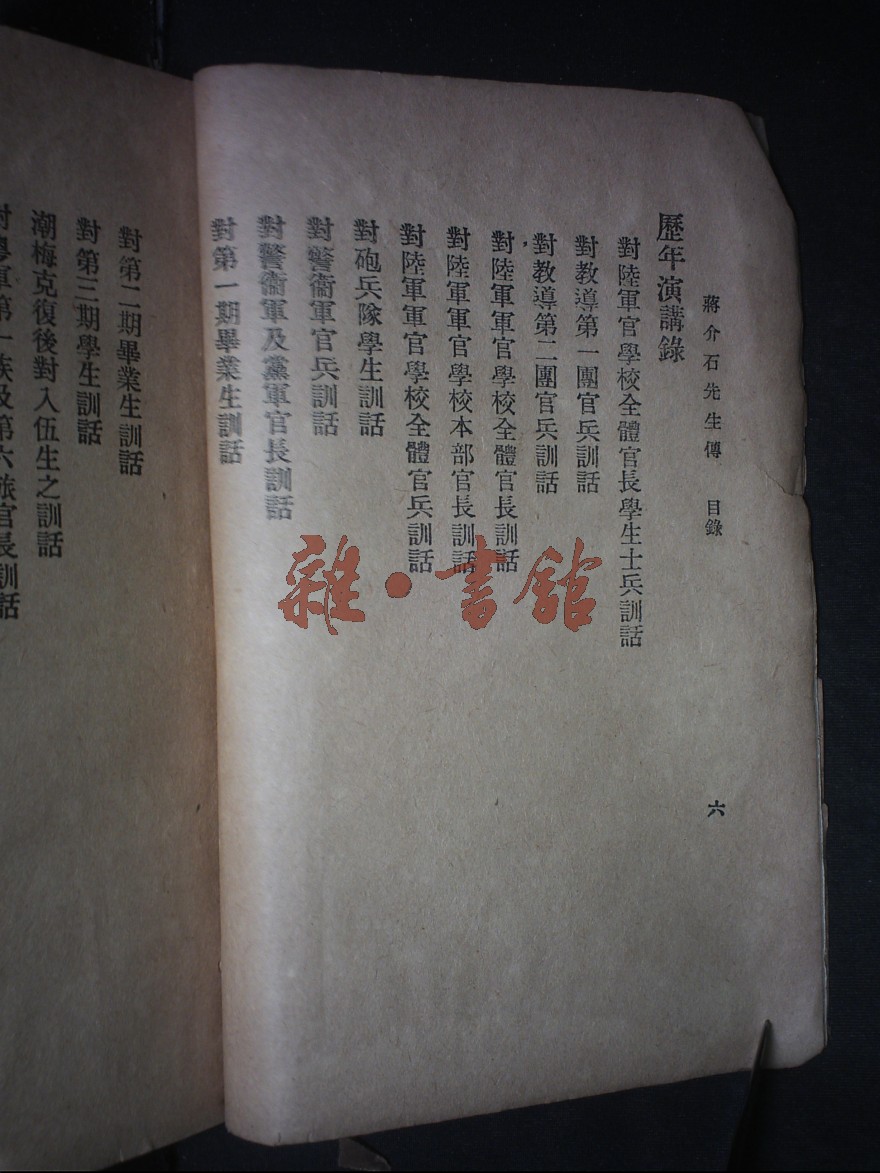 蔣介石先生傳 目錄
六
歷年演講錄
對陸軍官學校全體官長學生士兵訓話
對教導第一團官兵訓話
對教導第二團官兵訓話
對陸軍軍官學校全體官長訓話
對陸軍軍官學校本部官長訓話
對陸軍軍官學校全體官兵訓話
對砲兵隊學生訓話
對警衞軍官兵訓話
對警衞軍及黨軍官長訓話
對第一期畢業生訓話
對第二期畢業生訓話
對第三期學生訓話
潮梅克復後對入伍生之訓話
對粵軍第一族及第六旅官長訓話
雜·書館